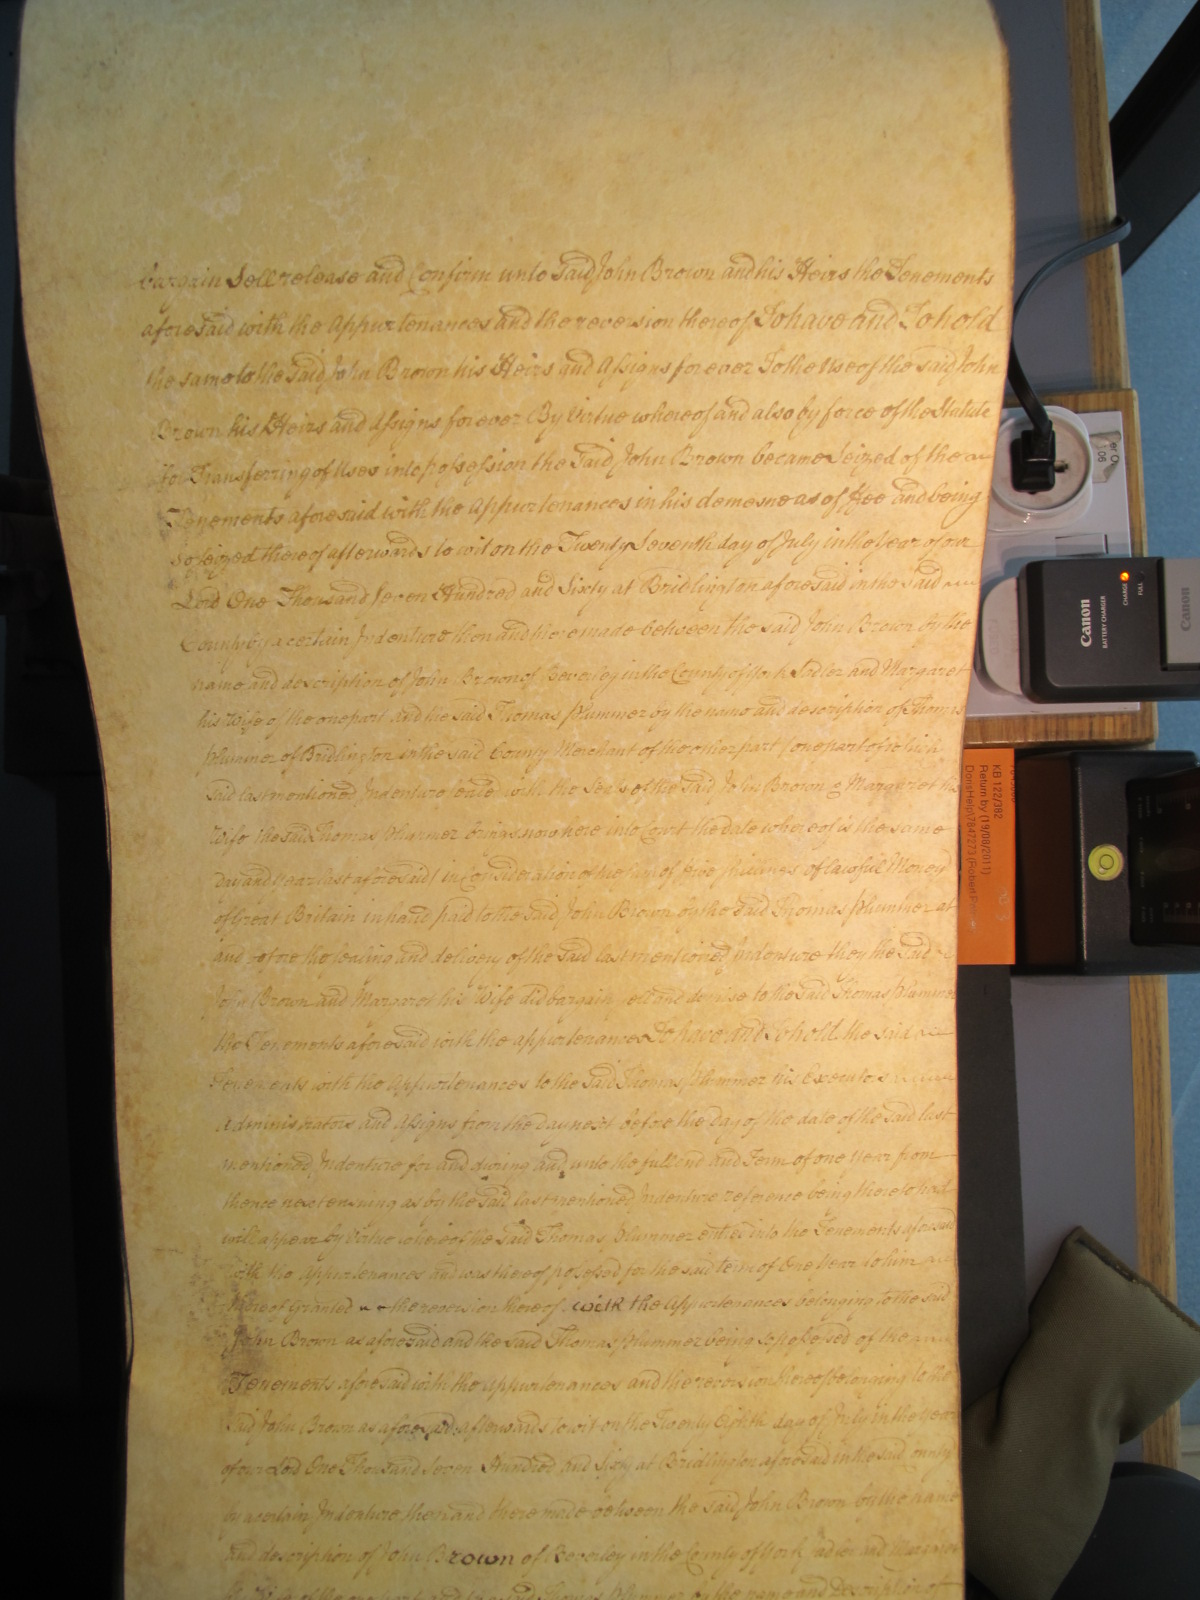 bargain Sell release and Confirm unto Said John Brown and his Heirs the Tenements
aforesaid with the Appurtenances and the reversion thereof To have and To hold
the same to the said John Brown his Heirs and Assigns for ever To the Use of the said John
Brown his Heirs and Assigns for ever By Virtue whereof and also by force of the Statute
for Transferring of Uses into possession the Said John Brown became Seized of the
Tenements aforesaid with the Appurtenances in his demesne as of Fee and being
so seized thereof afterwards to wit on the Twenty Seventh day of July in the Year of our
Lord One Thousand Seven Hundred and Sixty at Bridlington aforesaid in the said
County by a certain Indenture then and there made between the said John Brown by the
name and description of John Brown of Beverley in the County of York Sadler and Margaret
his Wife of the one part and the said Thomas Plummer by the name and description of Thomas
Plummer of Bridlington in the said County Merchant of the other part (one part of which
said last mentioned Indenture sealed with the Seals of the Said John Brown & Margaret his
Wife the said Thomas Plummer brings now here into Court the date whereof is the same
Day and Year last aforesaid) in Consideration of the sum of five shillings of lawful Money
of Great Britain in hand paid to the said John Brown by the said Thomas Plummer at
and before the sealing and delivery of the Said last mentioned Indenture they the Said
John Brown and Margaret his Wife did bargain sell and demise to the Said Thomas Plummer
the Tenements aforesaid with the appurtenances To have and to hold the said
Tenements with the Appurtenances to the Said Thomas Plummer his Executors
Administrators and Assigns from the day next before the day of the date of the said last
mentioned Indenture for and during and unto the full end and Term of one year from
thence next ensuing as by the Said last mentioned Indenture reference being thereto had
will appear by Virtue whereof the Said Thomas Plummer entred into the Tenements aforesaid
with the Appurtenances and was thereof possessed for the said term of One Year to him
thereof Granted the reversion thereof with the Appurtenances belonging to the said
John Brown as aforesaid and the said Thomas Plummer being so possessed of the
Tenements aforesaid with the Appurtenances and the reversion thereof belonging to the
said John Brown as aforesaid afterwards to wit on the Twenty Eighth day of July in the Year
of our Lord One Thousand Seven Hundred and Sixty at Bridlington aforesaid in the said County
by a certain Indenture then and there made between the said John Brown by the name
and description of John Brown of Beverley in the County of York Sadler and Margaret
his Wife of the one part and the said Thomas Plummer by the name and Description of
Canon
BATTERY CHARGER
CHARGE
FULL
Canon
KB 122/382
Return by (19/08/2011)